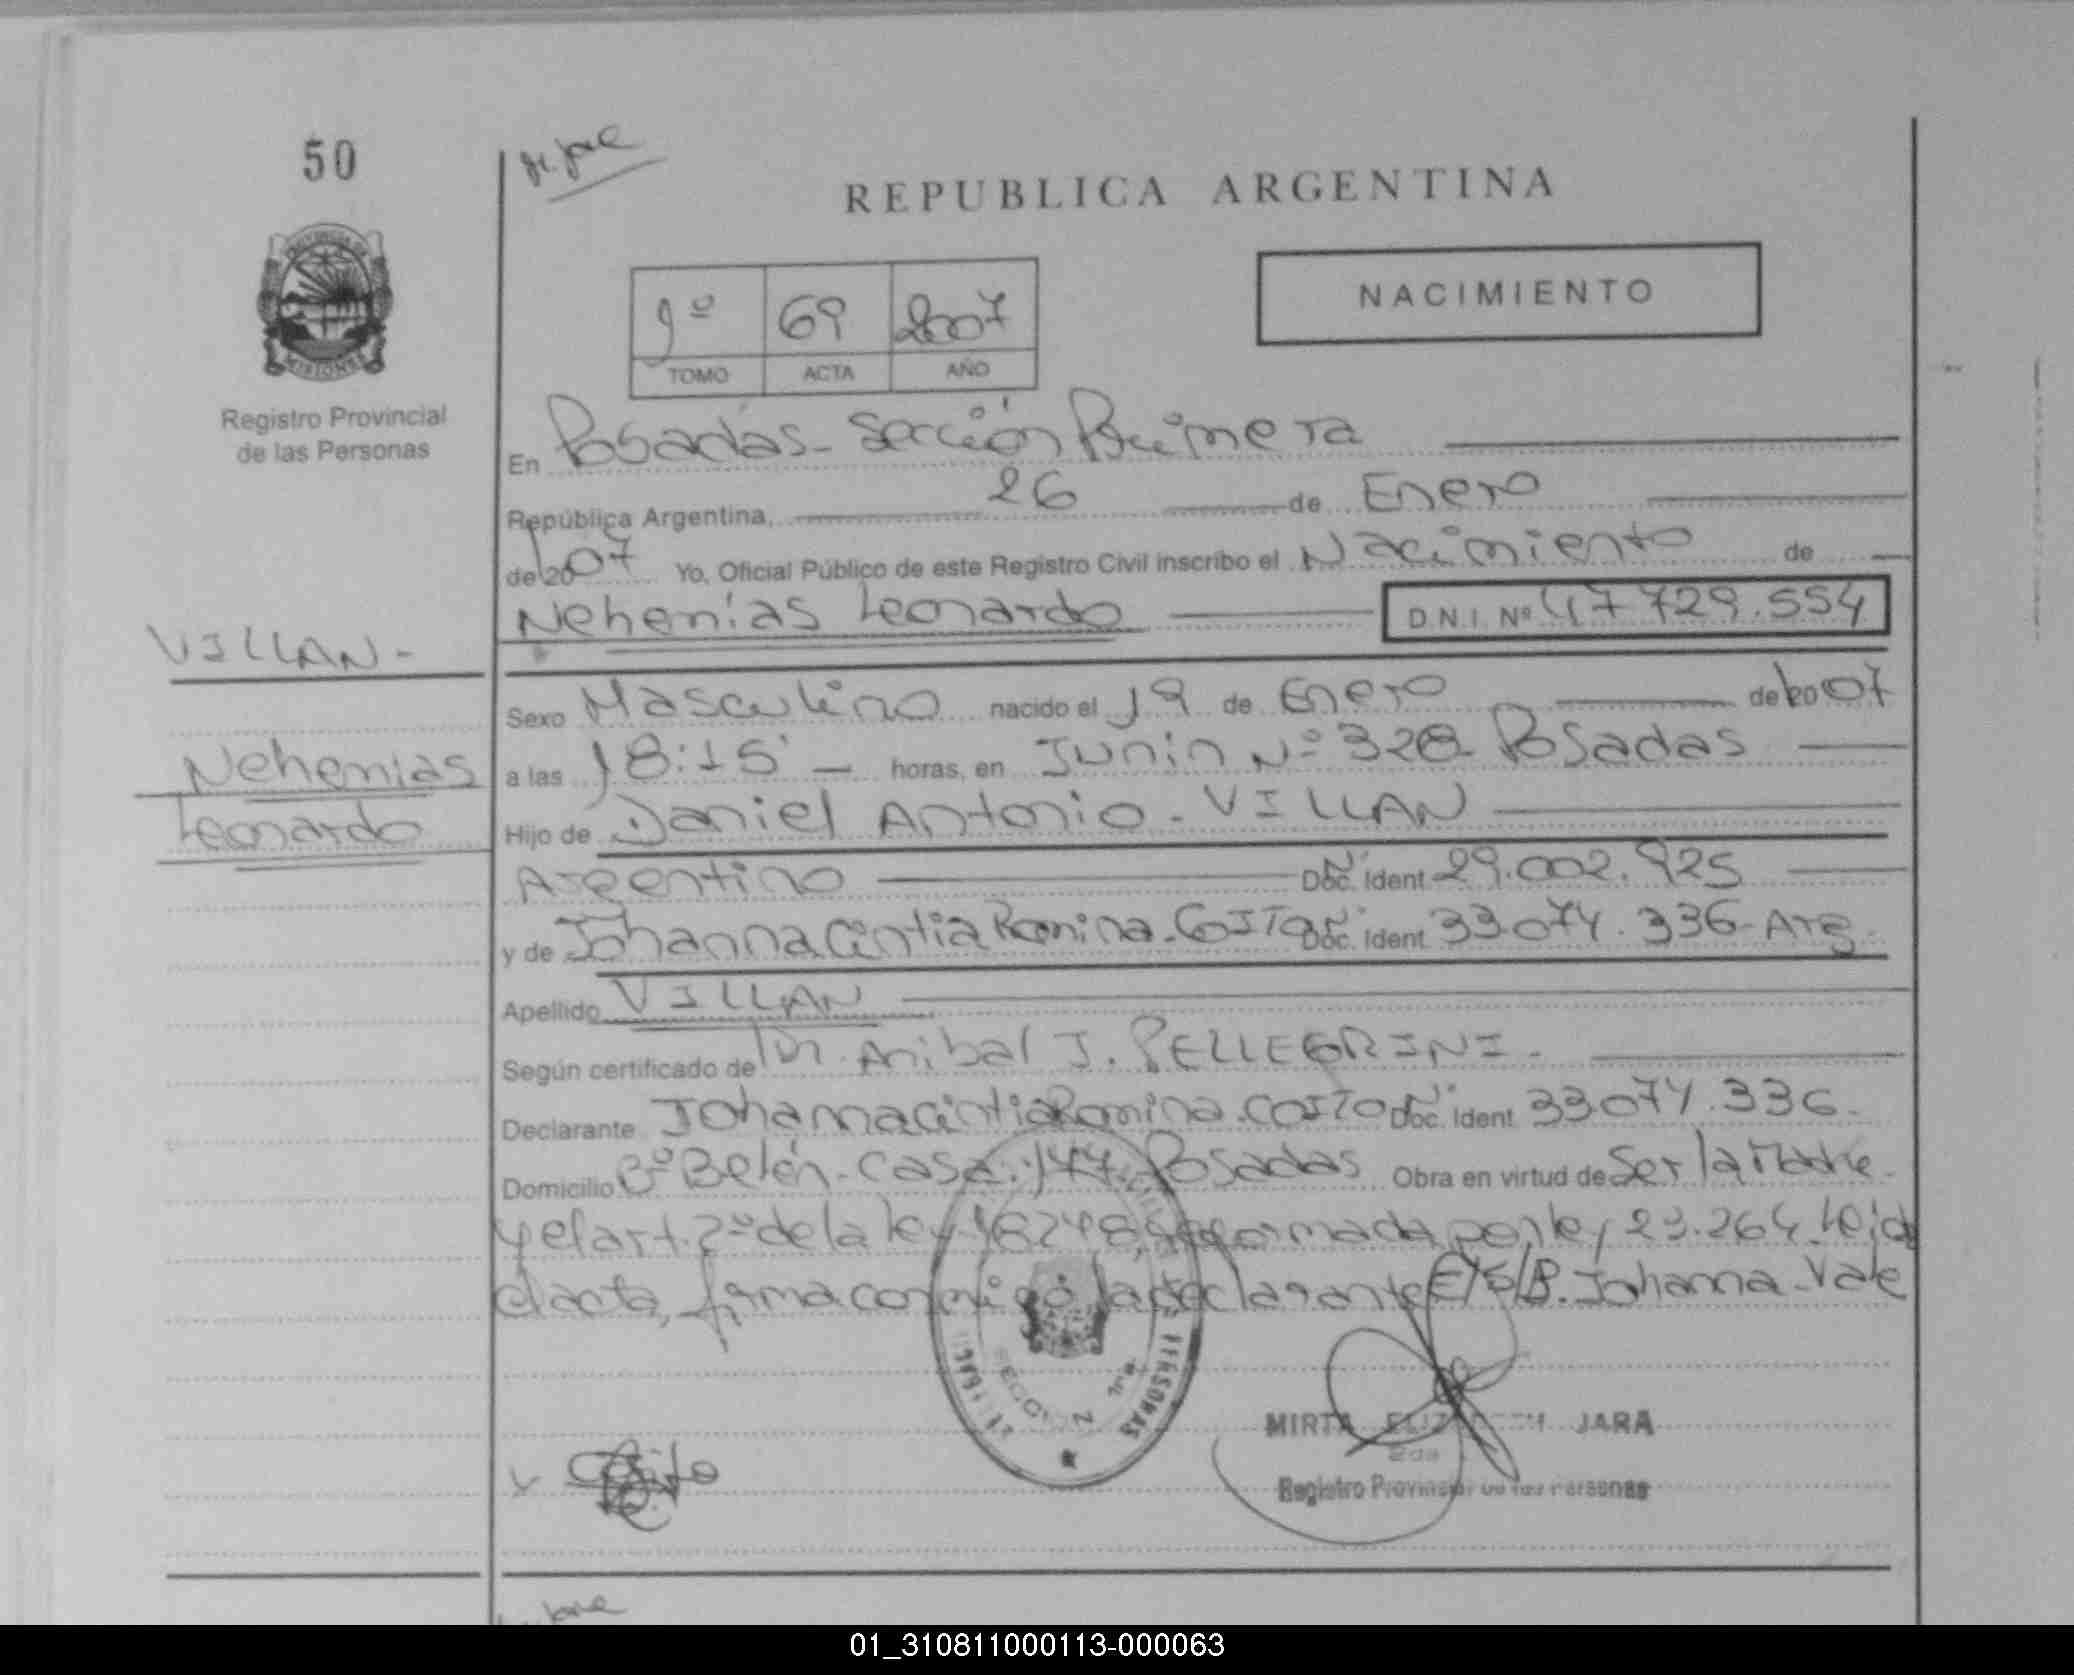 50
REPUBLICA ARGENTINA
NACIMIENTO
1º 69 2007
TOMO ACTA AÑO
PROVINCIA DE
MISIONES
Registro Provincial
de las Personas
En Posadas - Sección Primera
República Argentina, 26 de Enero
de 2007 Yo, Oficial Público de este Registro Civil inscribo el Nacimiento de
Nehemías Leonardo D.N.I. Nº 47 729.554
VILLAN -
Nehemias
Leonardo
Sexo Masculino nacido el 19 de Enero de 2007
a las 18:15' - horas, en Junin Nº 328 - Posadas
Hijo de Daniel Antonio - VILLAN
Argentino Doc. Ident. 29.002.925
y de Johanna Cintia Romina - Doc. Ident. 33.074.336 - Arg.
Apellido VILLAN
Según certificado de Dr. Anibal J. PELLEGRINI -
Declarante Johanna Cintia Romina - Doc. Ident. 33.074.336.
Domicilio Bº Belén - Casa: 144 - Posadas Obra en virtud de Ser la Madre
y el art. 2º de la ley 18248, reformada por ley 23.264. Leida
el acta, firma conmigo la declarante E/S/B. Johanna - Vale
SECCION 1ra
PERSONAS
MIRTA JARA
Registro Provincial de las Personas
01_310811000113-000063